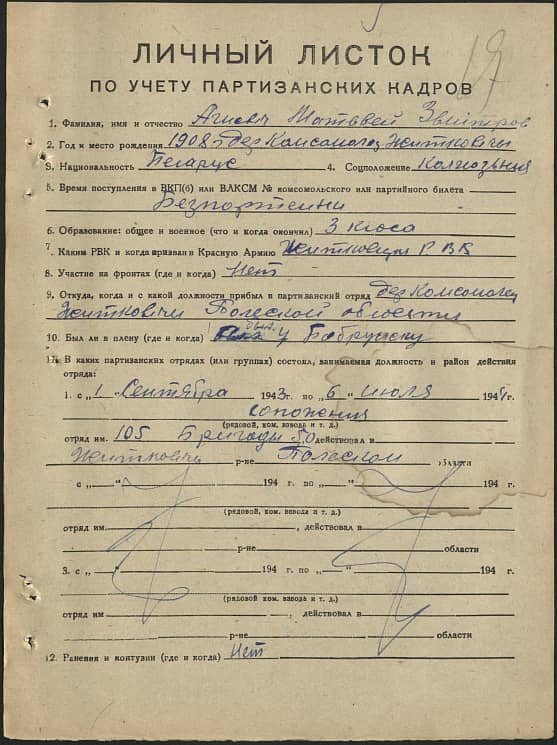 19
ЛИЧНЫЙ ЛИСТОК
ПО УЧЕТУ ПАРТИЗАНСКИХ КАДРОВ
1. Фамилия, имя и отчество Матвей
2. Год и место рождения 1908 дер Комсомолец Житковичи
3. Национальность Беларус 4. Соцположение
5. Время поступления в ВКП(б) или ВЛКСМ № комсомольского или партийного билета
Безпортеини
6. Образование: общее и военное (что и когда окончил) 3 класа
7. Каким РВК и когда призван в Красную Армию Р. В. К
8. Участие на фронтах (где и когда) Нет
9. Откуда, когда и с какой должности прибыл в партизанский отряд дер Комсомолец
Житковичи Полеской области
10. Был ли в плену (где и когда) был. у Бобруйску
11. В каких партизанских отрядах (или группах) состоял, занимаемая должность и район действия
отряда:
1. с „1 Сентября 1943 г. по „6 июля 194 г.
(рядовой, ком. взвода и т. д.)
отряд им. 105 Бригады 50 действовал в
Житкович р-не Полеском области
с „ “ 194 г. по „ “ 194 г.
(рядовой, ком. взвода и т. д.)
отряд им. , действовал в
р-не области
3. с „ “ 194 г. по „ “ 194 г.
(рядовой ком. взвода и т. д.)
отряд им. , действовал в
р-не области
12. Ранения и контузии (где и когда) Нет